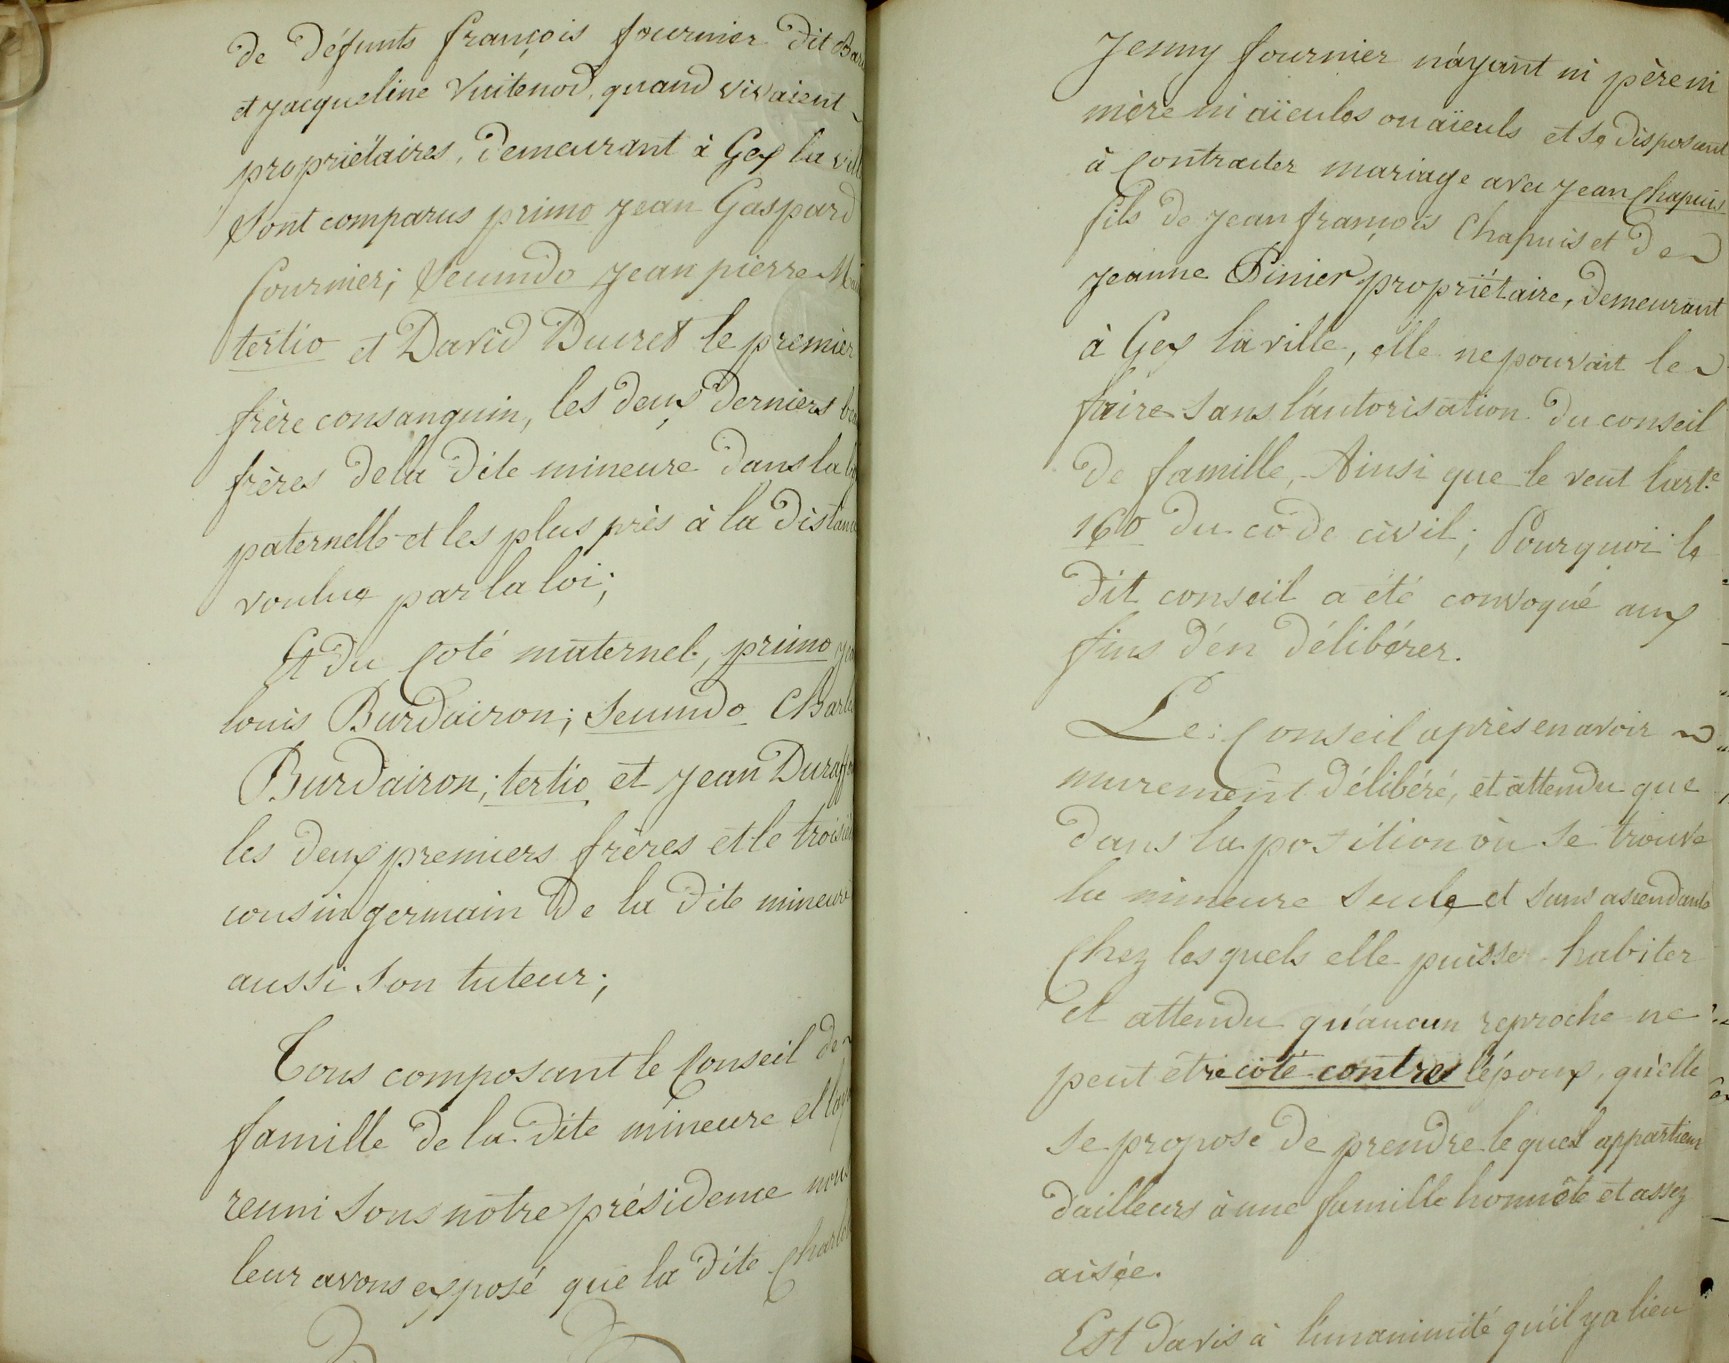 de défunts françois fournier dit
et jacqueline Vuitenod, quand vivaient
propriétaires, demeurant à Gex la
sont comparus primo jean Gaspard
fournier; secundo jean pierre
tertio et David Ducret le premier
frère consanguin, les deux derniers
frères de la dite mineure dans la
paternelle et les plus près à la
voulue par la loi;
Et du coté maternel, primo
louis Burdairon; secundo
Burdairon; tertio et jean
les deux premiers frères et le
cousin germain de la dite mineure
aussi son tuteur;
Tous composant le Conseil de
famille de la dite mineure et
reuni sous notre présidence nous
leur avons exposé que la dite
Jenny fournier n'ayant ni père ni
mère ni aieules ou aieuls et se disposant
à Contracter mariage avec jean Chapuis
fils de jean françois Chapuis et de
jeanne Pinier propriétaire, demeurant
à Gex la ville, elle ne pouvait le
faire sans l'autorisation du conseil
de famille, Ainsi que le veut l'art.e
160 du code civil; Pourquoi le
dit conseil a été convoqué aux
fins d'en délibérer.
Le Conseil après en avoir
murement délibéré, et attendu que
dans la position ou se trouve
la mineure seule et sans ascendants
Chez lesquels elle puisse habiter
et attendu qu'aucun reproche ne
peut être coté contre l'époux, qu'elle
se propose de prendre lequel appartient
d'ailleurs à une famille honnête et assez
aisée.
Est d'avis à l'unanimité qu'il y a lieu